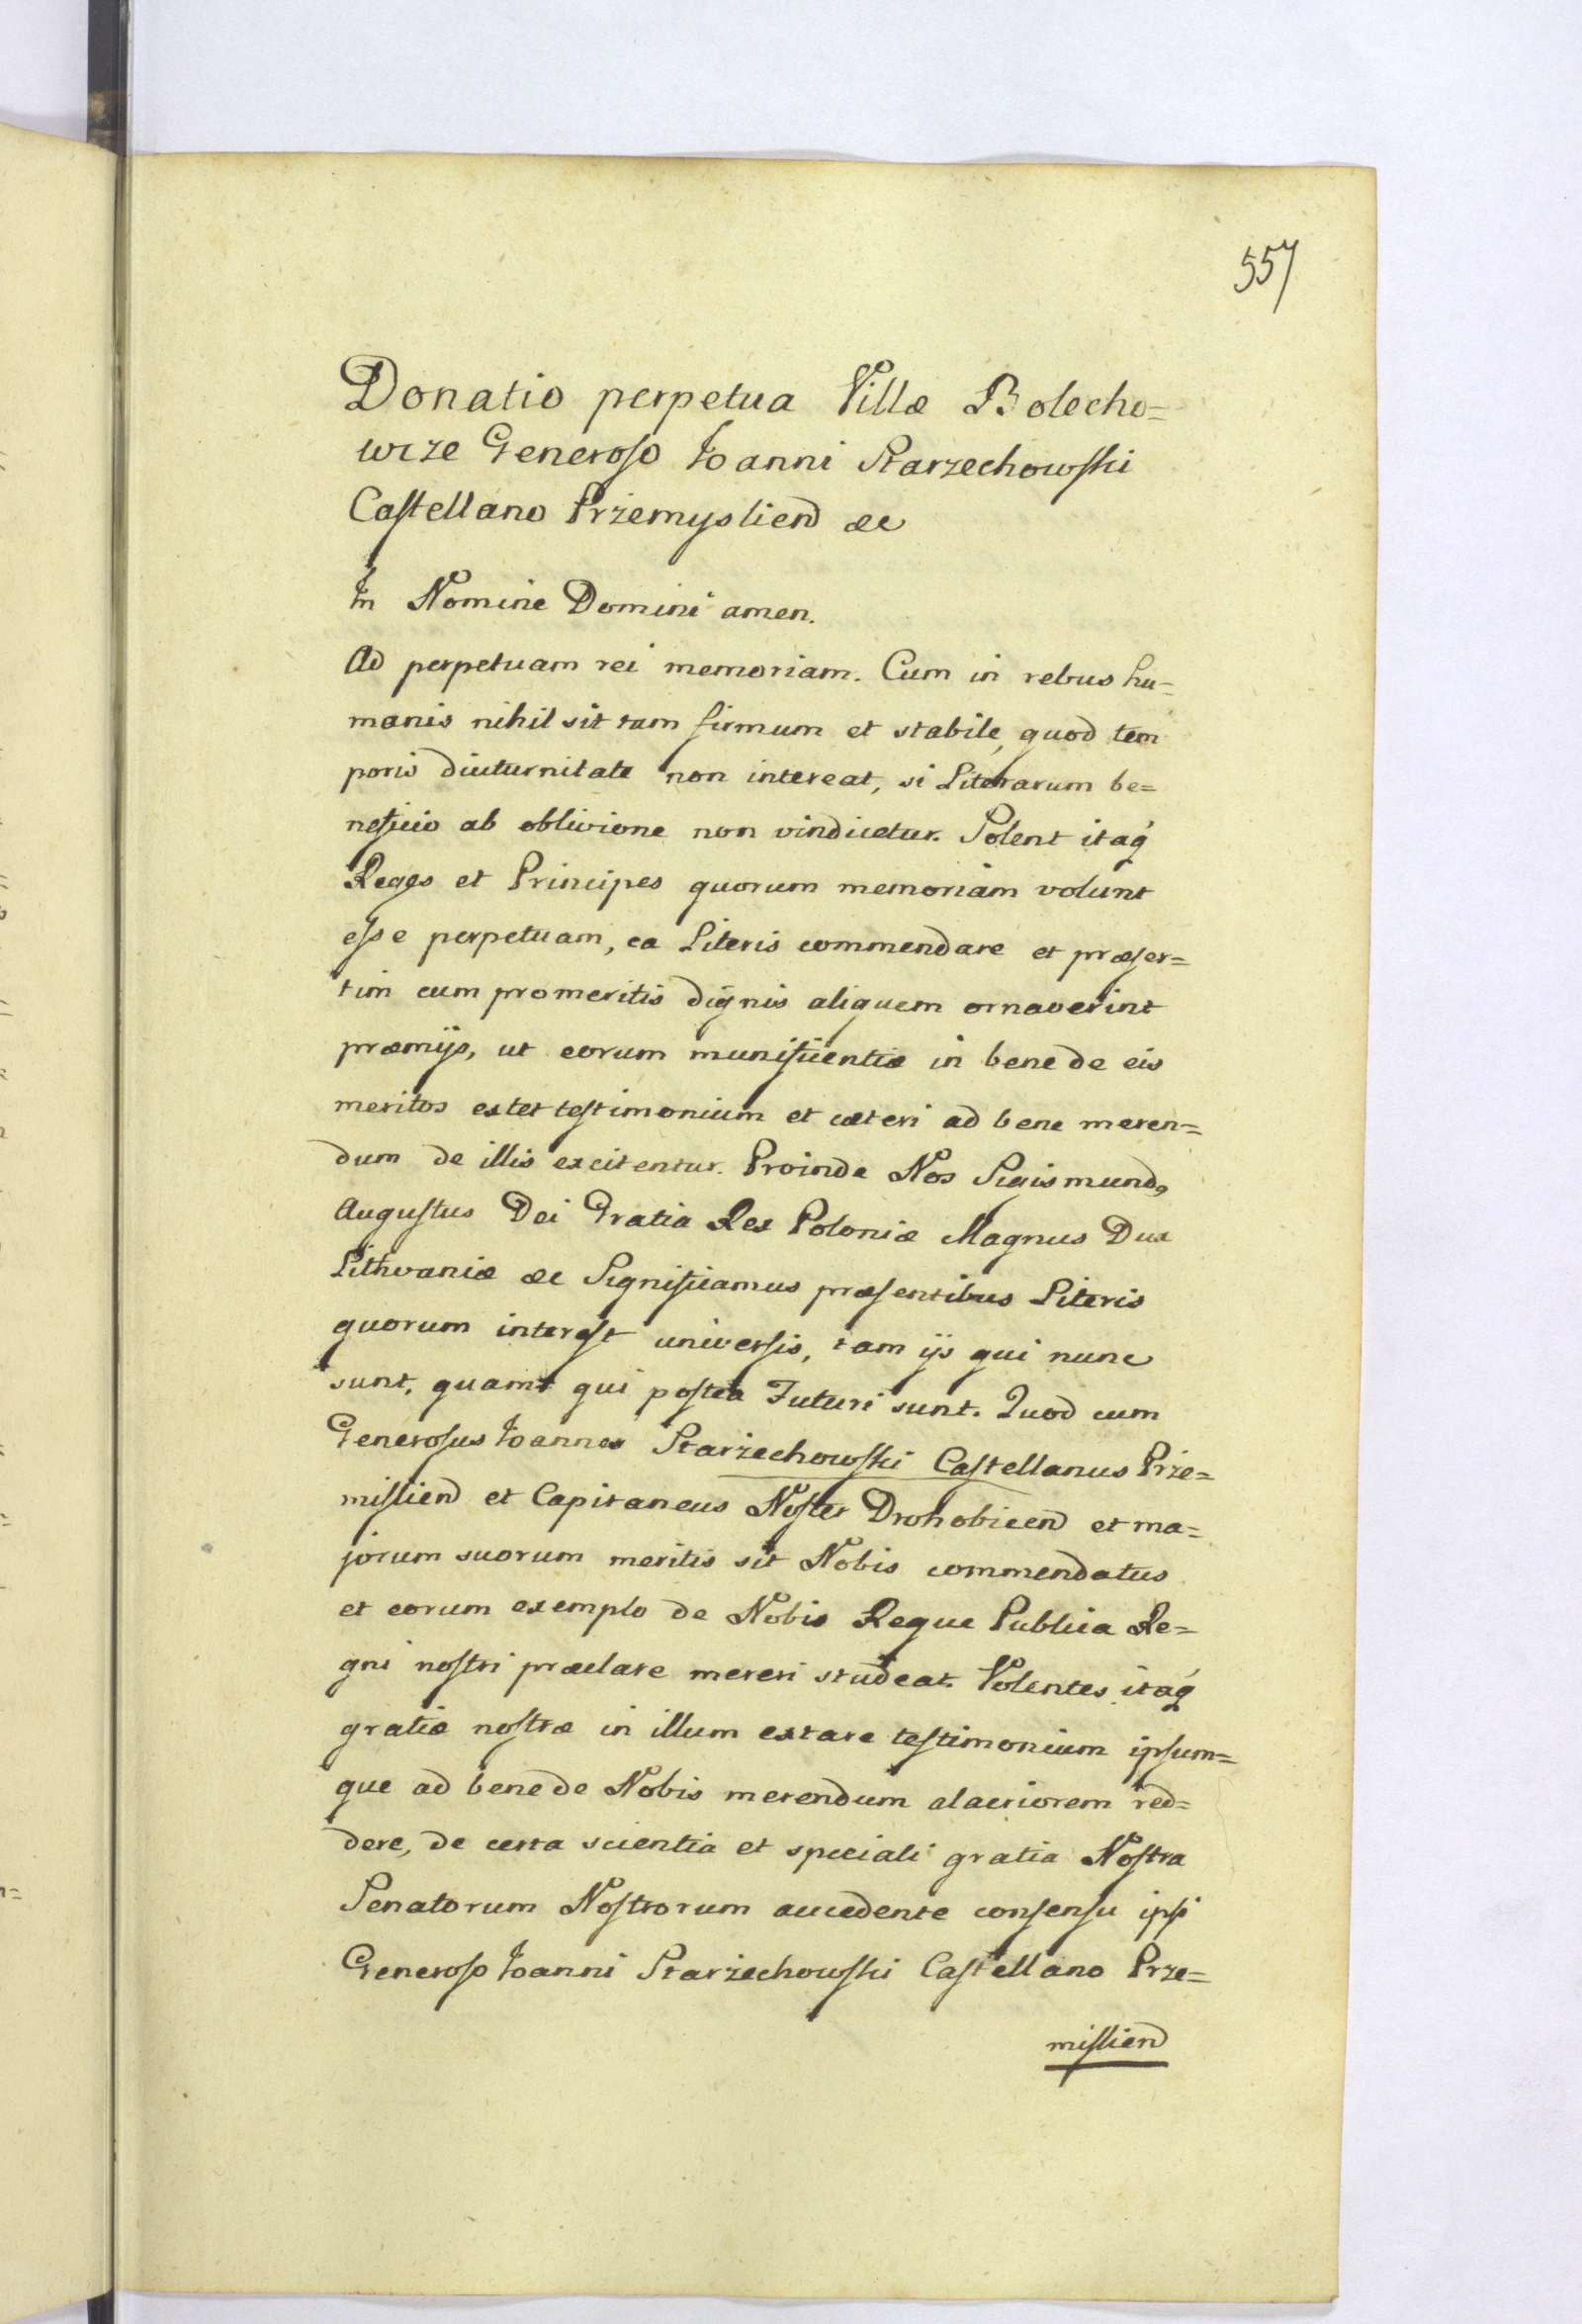 557
Donatio perpetua Villæ Bolecho=
wcze Generoso Joanni Starzechowski
Castellano Przemysliend æc
In Nomine Domini amen.
Ad perpetuam rei memoriam. Cum in rebus hu=
manis nihil sit tam firmum et stabile, quod tem
poris diuturnitate non intereat, si Literarum be=
neficio ab oblivione non vindicetur. Solent itaq́
Reges et Principes quorum memoriam volunt
esse perpetuam, ea Literis commendare et præser=
tim cum promeritis dignis aliquem ornaverint
præmijs, ut eorum munificentiæ in bene de eis
meritos extet testimonium et cæteri ad bene meren=
dum de illis excitentur. Proinde Nos Sigismund9
Augustus Dei Gratia Rex Poloniæ Magnus Dux
Lithvaniæ æc Significamus præsentibus Literis
quorum interest universis, tam ijs qui nunc
sunt, quamt qui postea Futuri sunt. Quod cum
Generosus Joannes Starzechowski Castellanus Prze=
misliend et Capitaneus Noster Drohobicend et ma=
jorum suorum meritis sit Nobis commendatus
et eorum exemplo de Nobis Reque Publica Re=
gni nostri præclare mereri studeat. Volentes itaq́
gratiæ nostræ in illum extare testimonium ipsum=
que ad bene de Nobis merendum alacriorem red=
dere, de certa scientia et speciali gratia Nostra
Senatorum Nostrorum accedente consensu ipsi
Generoso Joanni Starzechowski Castellano Prze=
misliend